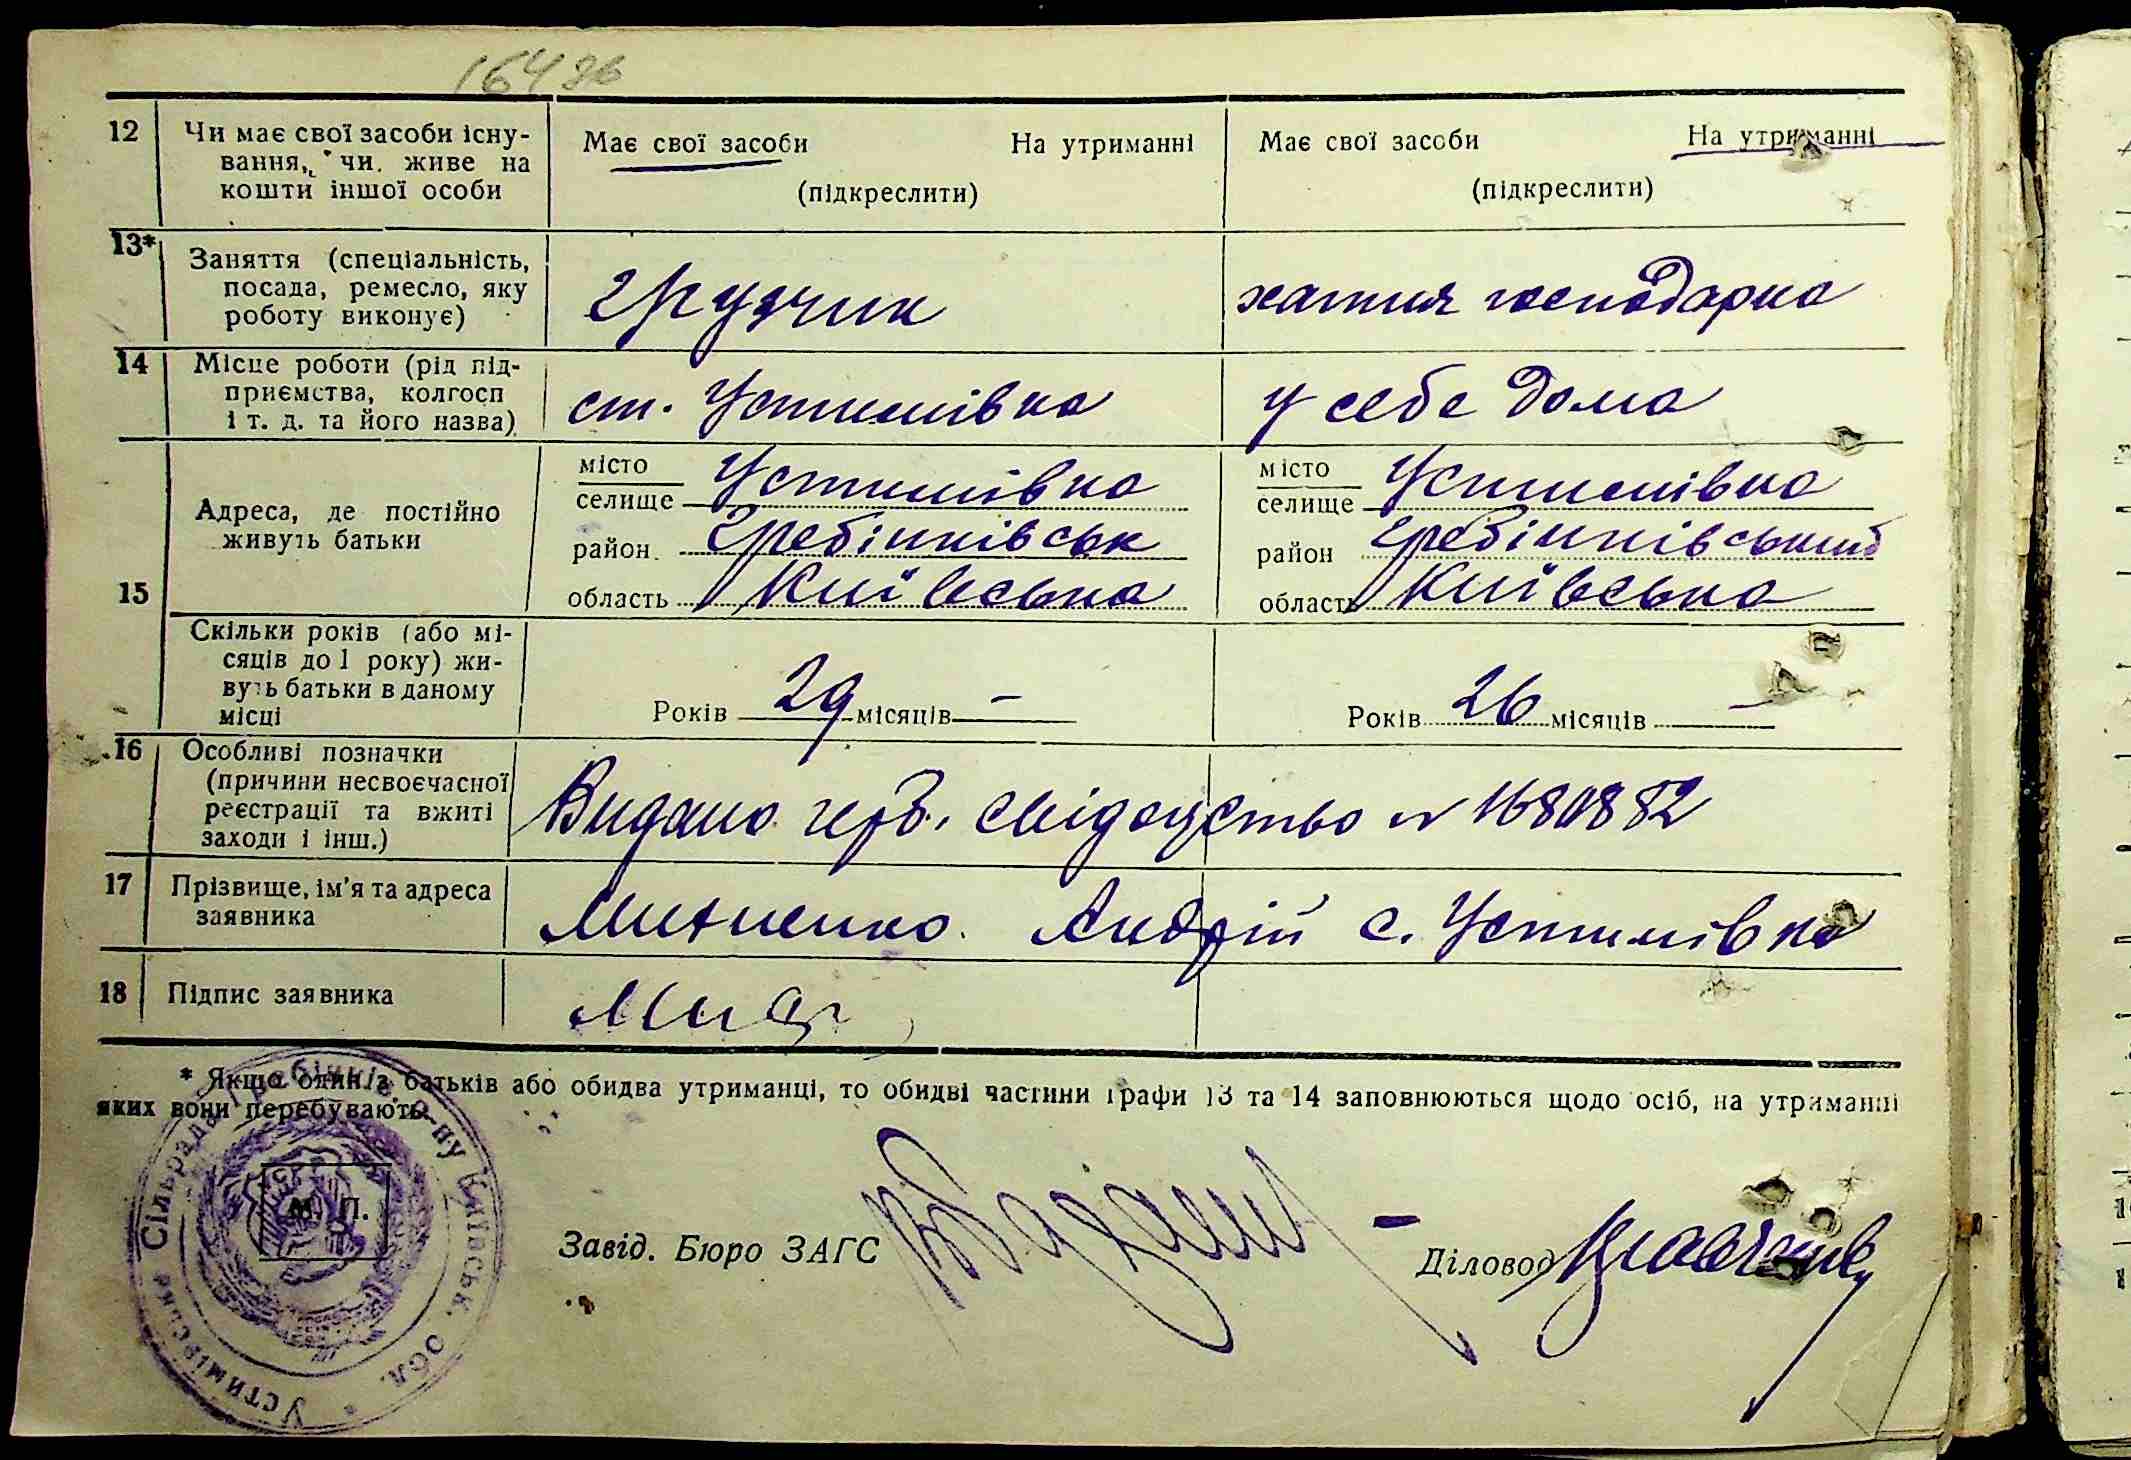 16486
12 Чи має свої засоби існу- Має свої засоби На утриманні Має свої засоби На утриманні
вання, чи живе на
кошти іншої особи (підкреслити) (підкреслити)
13* Заняття (спеціальність,
посада, ремесло, яку грузчик хатня господарка
роботу виконує)
14 Місце роботи (рід під-
приємства, колгосп ст. Устимівка у себе дома
і т. д. та його назва)
15 Адреса, де постійно
живуть батьки
місто
селище Устимівка місто
селище Устимівка
район Гребінківськ район Гребінківський
область Київська область Київська
Скільки років (або мі-
сяців до 1 року) жи-
вуть батьки в даному
місці
Років 29 місяців – Років 26 місяців –
16 Особливі позначки
(причини несвоєчасної
реєстрації та вжиті
заходи і інш.)
Видано черв. свідоцтво № 1680882
17 Прізвище, ім'я та адреса
заявника
Михненко Андрій с. Устимівка
18 Підпис заявника
* Якщо один з батьків або обидва утриманці, то обидві частини графи 13 та 14 заповнюються щодо осіб, на утриманні
яких вони перебувають.
Устимівська Сільрада Гребінків. р-ну Київськ. обл.
М. П.
Завід. Бюро ЗАГС
Діловод